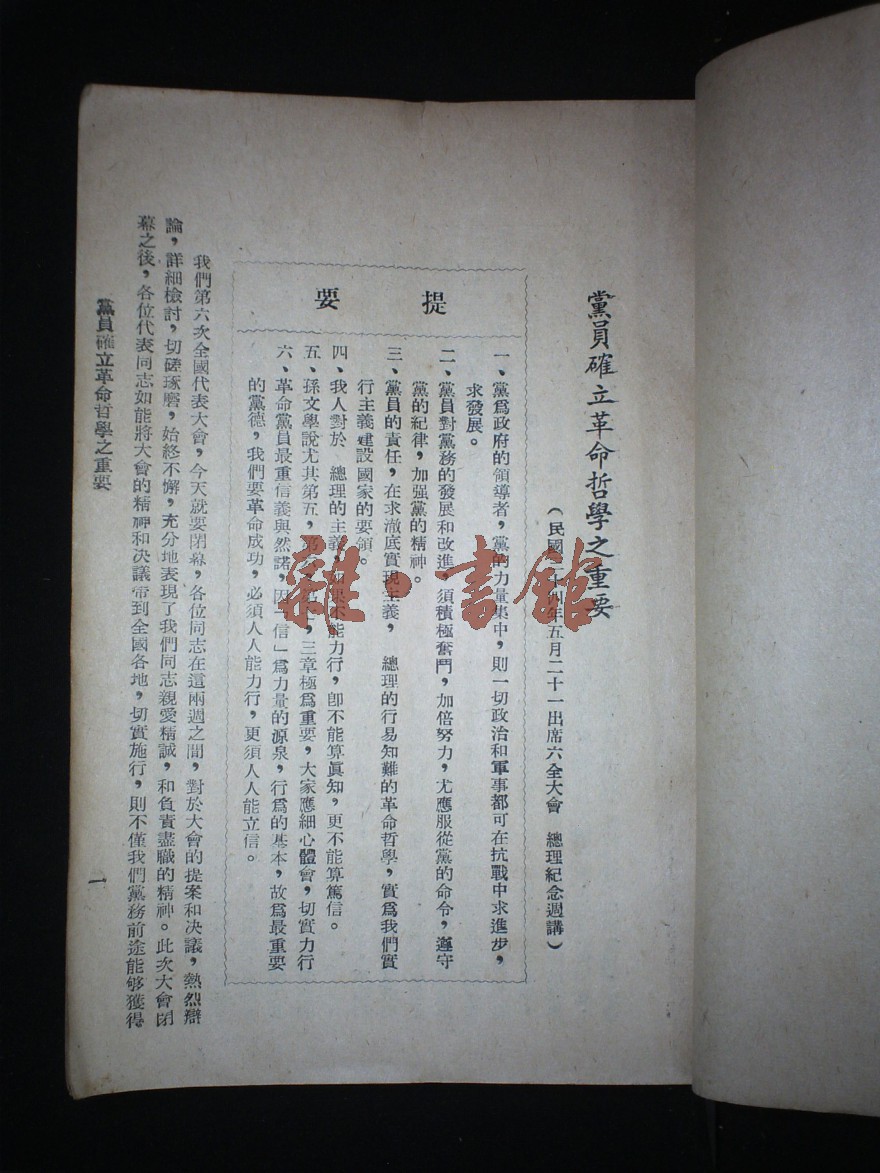 黨員確立革命哲學之重要
(民國三十四年五月二十一出席六全大會　總理紀念週講)
提要
一、黨爲政府的領導者,黨的力量集中,則一切政治和軍事都可在抗戰中求進步,
求發展。
二、黨員對黨務的發展和改進,須積極奮鬥,加倍努力,尤應服從黨的命令,遵守
黨的紀律,加强黨的精神。
三、黨員的責任,在求澈底實現主義,總理的行易知難的革命哲學,實爲我們實
行主義建設國家的要領。
四、我人對於　總理的主義,如果不能力行,卽不能算眞知,更不能算篤信。
五、孫文學說尤其第五,第,三章極爲重要,大家應細心體會,切實力行
六、革命黨員最重信義與然諾,因「信」爲力量的源泉,行爲的基本,故爲最重要
的黨德,我們要革命成功,必須人人能力行,更須人人能立信。
我們第六次全國代表大會,今天就要閉幕,各位同志在這兩週之間,對於大會的提案和决議,熱烈辯
論,詳細檢討,切磋琢磨,始終不懈,充分地表現了我們同志親愛精誠,和負責盡職的精神。此次大會閉
幕之後,各位代表同志如能將大會的精神和决議帶到全國各地,切實施行,則不僅我們黨務前途能够獲得
黨員確立革命哲學之重要
一
雜·書館